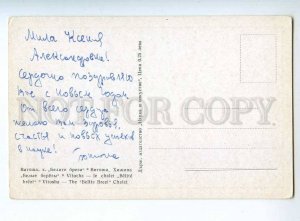 Мила Ксения
Александровна!
Сердечно поздравляю
Вас с Новым годом
От всего сердца
желаю Вам здоровья,
счастья и новых успехов
в науке!
Витоша, х. „Белите брези“ * Витоша, Хижина
„Белые берёзы“ * Vitocha — le chalet „Bélité
brésі“ * Vitosha — The “Belite Brezi” Chalet
NOT FOR COPY